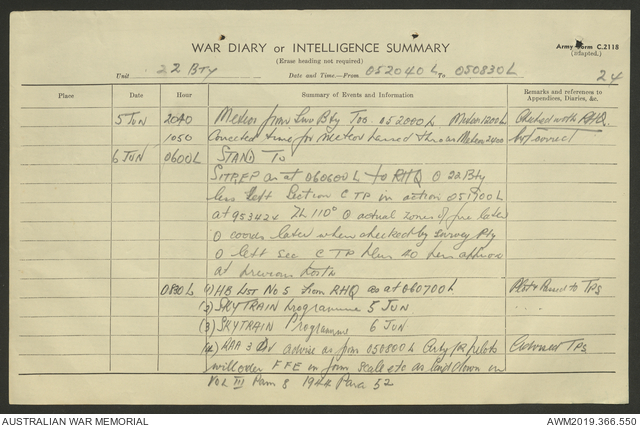 WAR DIARY or INTELLIGENCE SUMMARY
Army Form C.2118
(adapted.)
(Erase heading not required)
Unit 22 BTY Date and Time—From 052040L To 050830L
24
Place Date Hour Summary of Events and Information Remarks and references to Appendices, Diaries, &c.
5 JUN 2040 Meteor from Svy Bty TOO 052000L Checked with RHQ.
1050 Corrected time for meteor 2400 correct
6 JUN 0600L STAND TO
SITREP as at 060600L to RHQ 22 Bty
less left Section C TP in action 051900L
at 953424 Zh 110° actual zones of fire later
coords later when checked by survey Pty
left sec C TP
at previous
0830L (1) HB List No 5 from RHQ as at 060700L to TPS
(2) SKYTRAIN Programme 5 JUN
(3) SKYTRAIN Programme 6 JUN
(4) advise as from 050800L Arty pilots Advised TPS
will order FFE in form scale etc as laid down in
VOL III Pam 8 1944 Para 52
AUSTRALIAN WAR MEMORIAL
AWM2019.366.550